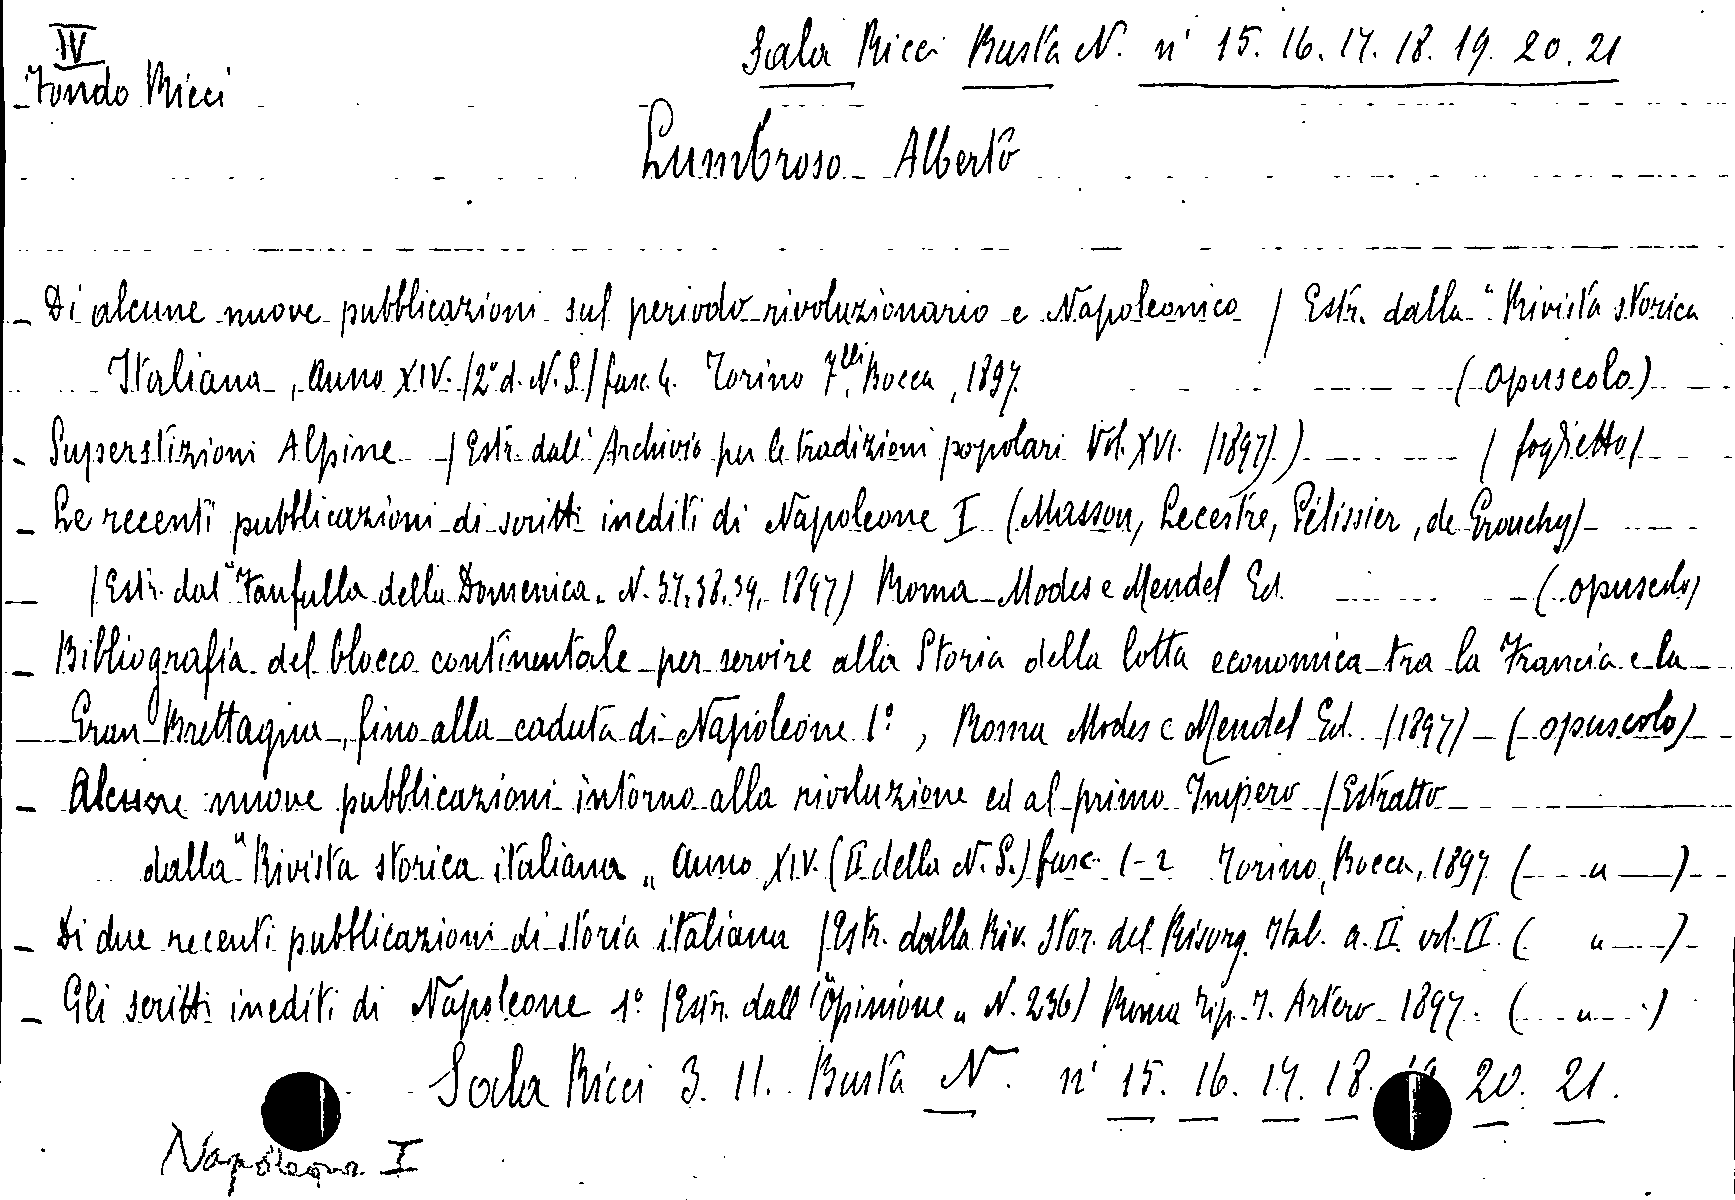 IV
Fondo Ricci
Sala Ricci Busta N. n' 15. 16. 17. 18. 19. 20. 21
Lumbroso Alberto
- Di alcune nuove pubblicazioni sul periodo rivoluzionario e Napoleonico / Estr. dalla "Rivista storica
Italiana, Anno XIV. /2° d. N. S./ fasc. 4. Torino F.lli Bocca, 1897. (opuscolo)
- Superstizioni Alpine / Estr. dall' Archivio per le tradizioni popolari Vol. XVI. /1897/.) / foglietto/
- Le recenti pubblicazioni di scritti inediti di Napoleone I (Masson, Lecestre, Pélissier, de Grouchy)
/Estr. dal "Fanfulla della Domenica" N. 37, 38, 39, 1897/ Roma Modes e Mendel Ed. (opuscolo)
- Bibliografia del blocco continentale per servire alla Storia della lotta economica tra la Francia e la
Gran Brettagna, fino alla caduta di Napoleone 1°, Roma Modes e Mendel Ed. /1897/ (opuscolo)
- Alcune nuove pubblicazioni intorno alla rivoluzione ed al primo Impero /Estratto
dalla "Rivista storica italiana" Anno XIV. (II della N. S.) fasc. 1-2 Torino, Bocca, 1897 ( " )
- Di due recenti pubblicazioni di storia italiana /Estr. dalla Riv. Stor. del Risorg. Ital. a. II. vol. II. ( " )
- Gli scritti inediti di Napoleone 1° /Estr. dall' "Opinione" N. 236/ Roma Tip. F. Artero 1897. ( " )
Sala Ricci 3. 11. Busta N. n' 15. 16. 17. 18. 19 20. 21.
Napoleone I